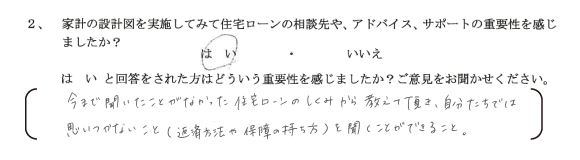 2、 家計の設計図を実施してみて住宅ローンの相談先や、アドバイス、サポートの重要性を感じ
ましたか？
は い ・ いいえ
は い と回答をされた方はどういう重要性を感じましたか？ご意見をお聞かせください。
今まで聞いたことがなかった住宅ローンのしくみから教えて頂き、自分たちでは
思いつかないこと(返済方法や保障の持ち方)を聞くことができること。